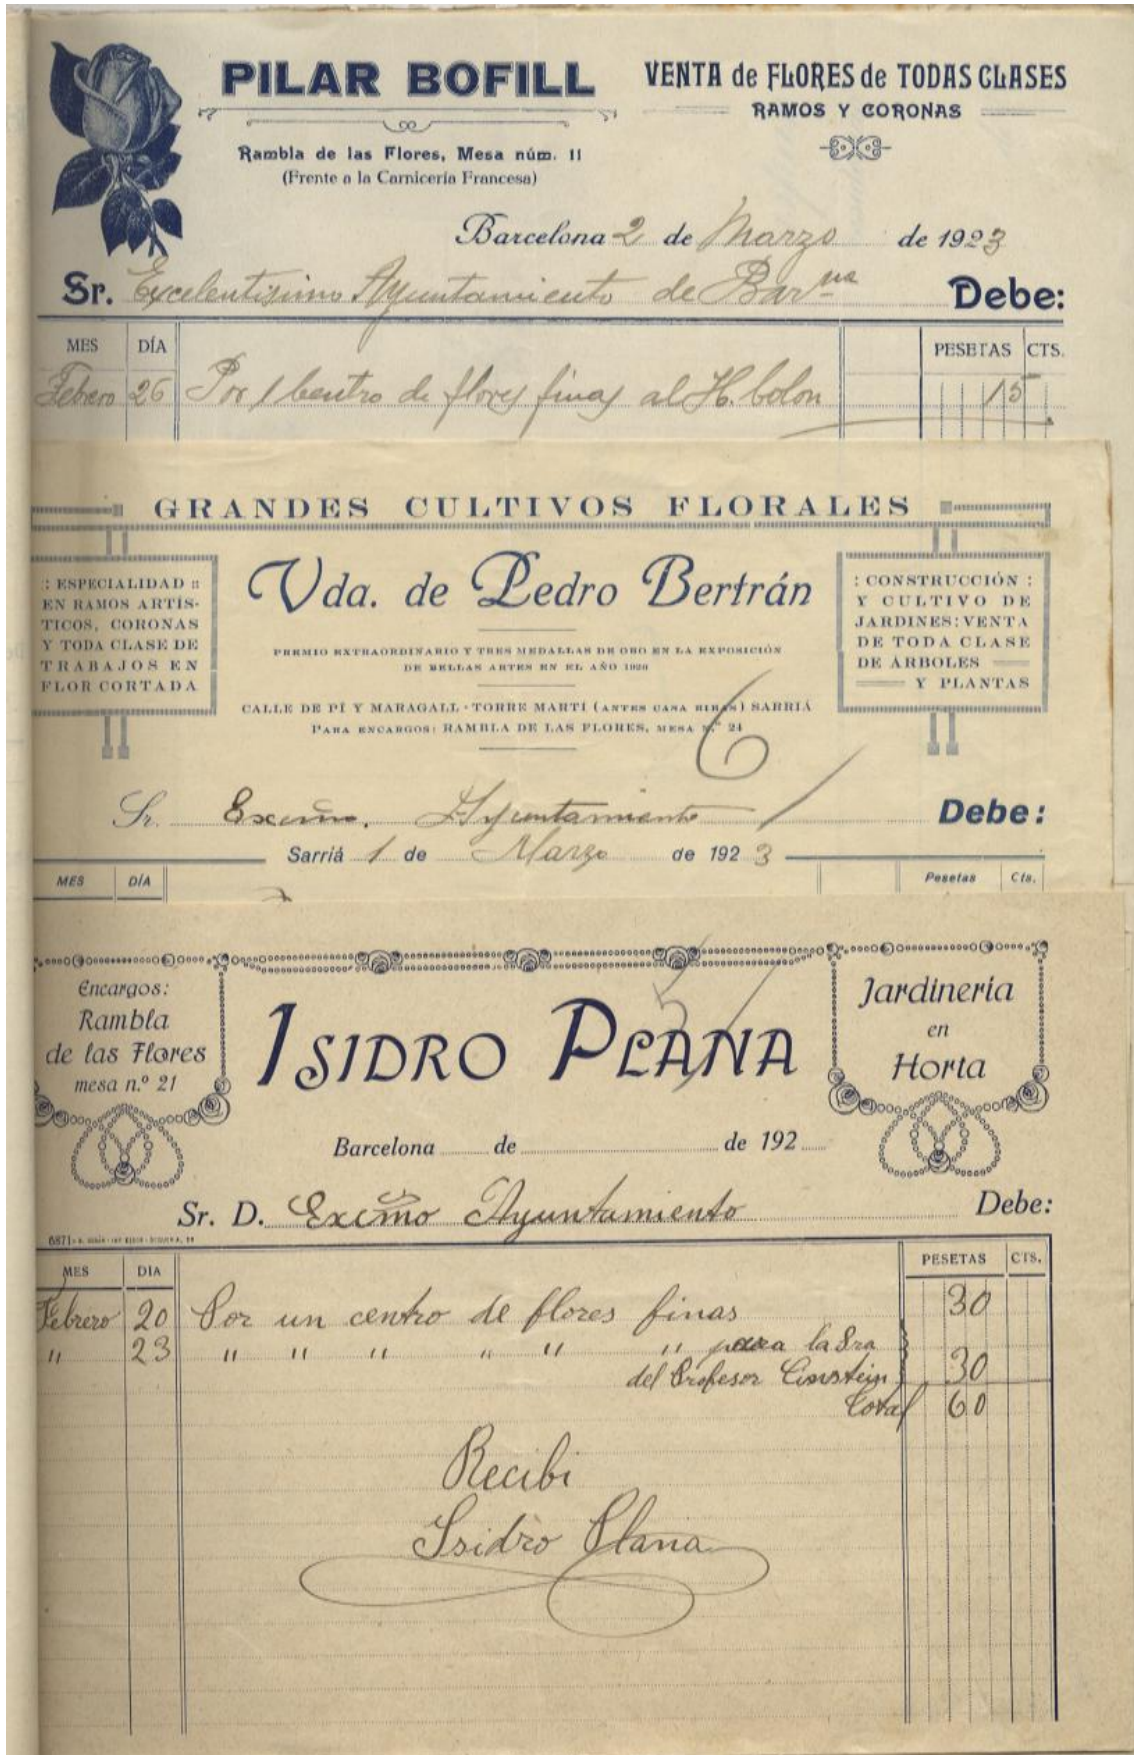 PILAR BOFILL
VENTA de FLORES de TODAS CLASES
RAMOS Y CORONAS
Rambla de las Flores, Mesa núm. 11
(Frente a la Carnicería Francesa)
Barcelona 2 de Marzo de 1923
Sr. Excelentisimo Ayuntamiento de Barna Debe:
MES DÍA PESETAS CTS.
Febrero 26 Por 1 centro de flores finas al H. Colon 15
GRANDES CULTIVOS FLORALES
: ESPECIALIDAD ::
EN RAMOS ARTÍS-
TICOS, CORONAS
Y TODA CLASE DE
TRABAJOS EN
FLOR CORTADA
Vda. de Pedro Bertrán
PREMIO EXTRAORDINARIO Y TRES MEDALLAS DE ORO EN LA EXPOSICIÓN
DE BELLAS ARTES EN EL AÑO 1920
CALLE DE PÍ Y MARAGALL - TORRE MARTÍ (ANTES CASA RIBAS) SARRIÁ
PARA ENCARGOS: RAMBLA DE LAS FLORES, MESA N.º 24
: CONSTRUCCIÓN :
Y CULTIVO DE
JARDINES: VENTA
DE TODA CLASE
DE ÁRBOLES
Y PLANTAS
6
Sr. Excmo. Ayuntamiento Debe:
Sarriá 1 de Marzo de 1923
MES DÍA Pesetas Cts.
Encargos:
Rambla
de las Flores
mesa n.º 21
ISIDRO PLANA
Jardinería
en
Horta
5
Barcelona de de 192
Sr. D. Excmo Ayuntamiento Debe:
6871
MES DIA PESETAS CTS.
Febrero 20 Por un centro de flores finas 30
" 23 " " " " " " para la Sra
del Profesor Einstein 30
Total 60
Recibi
Isidro Plana